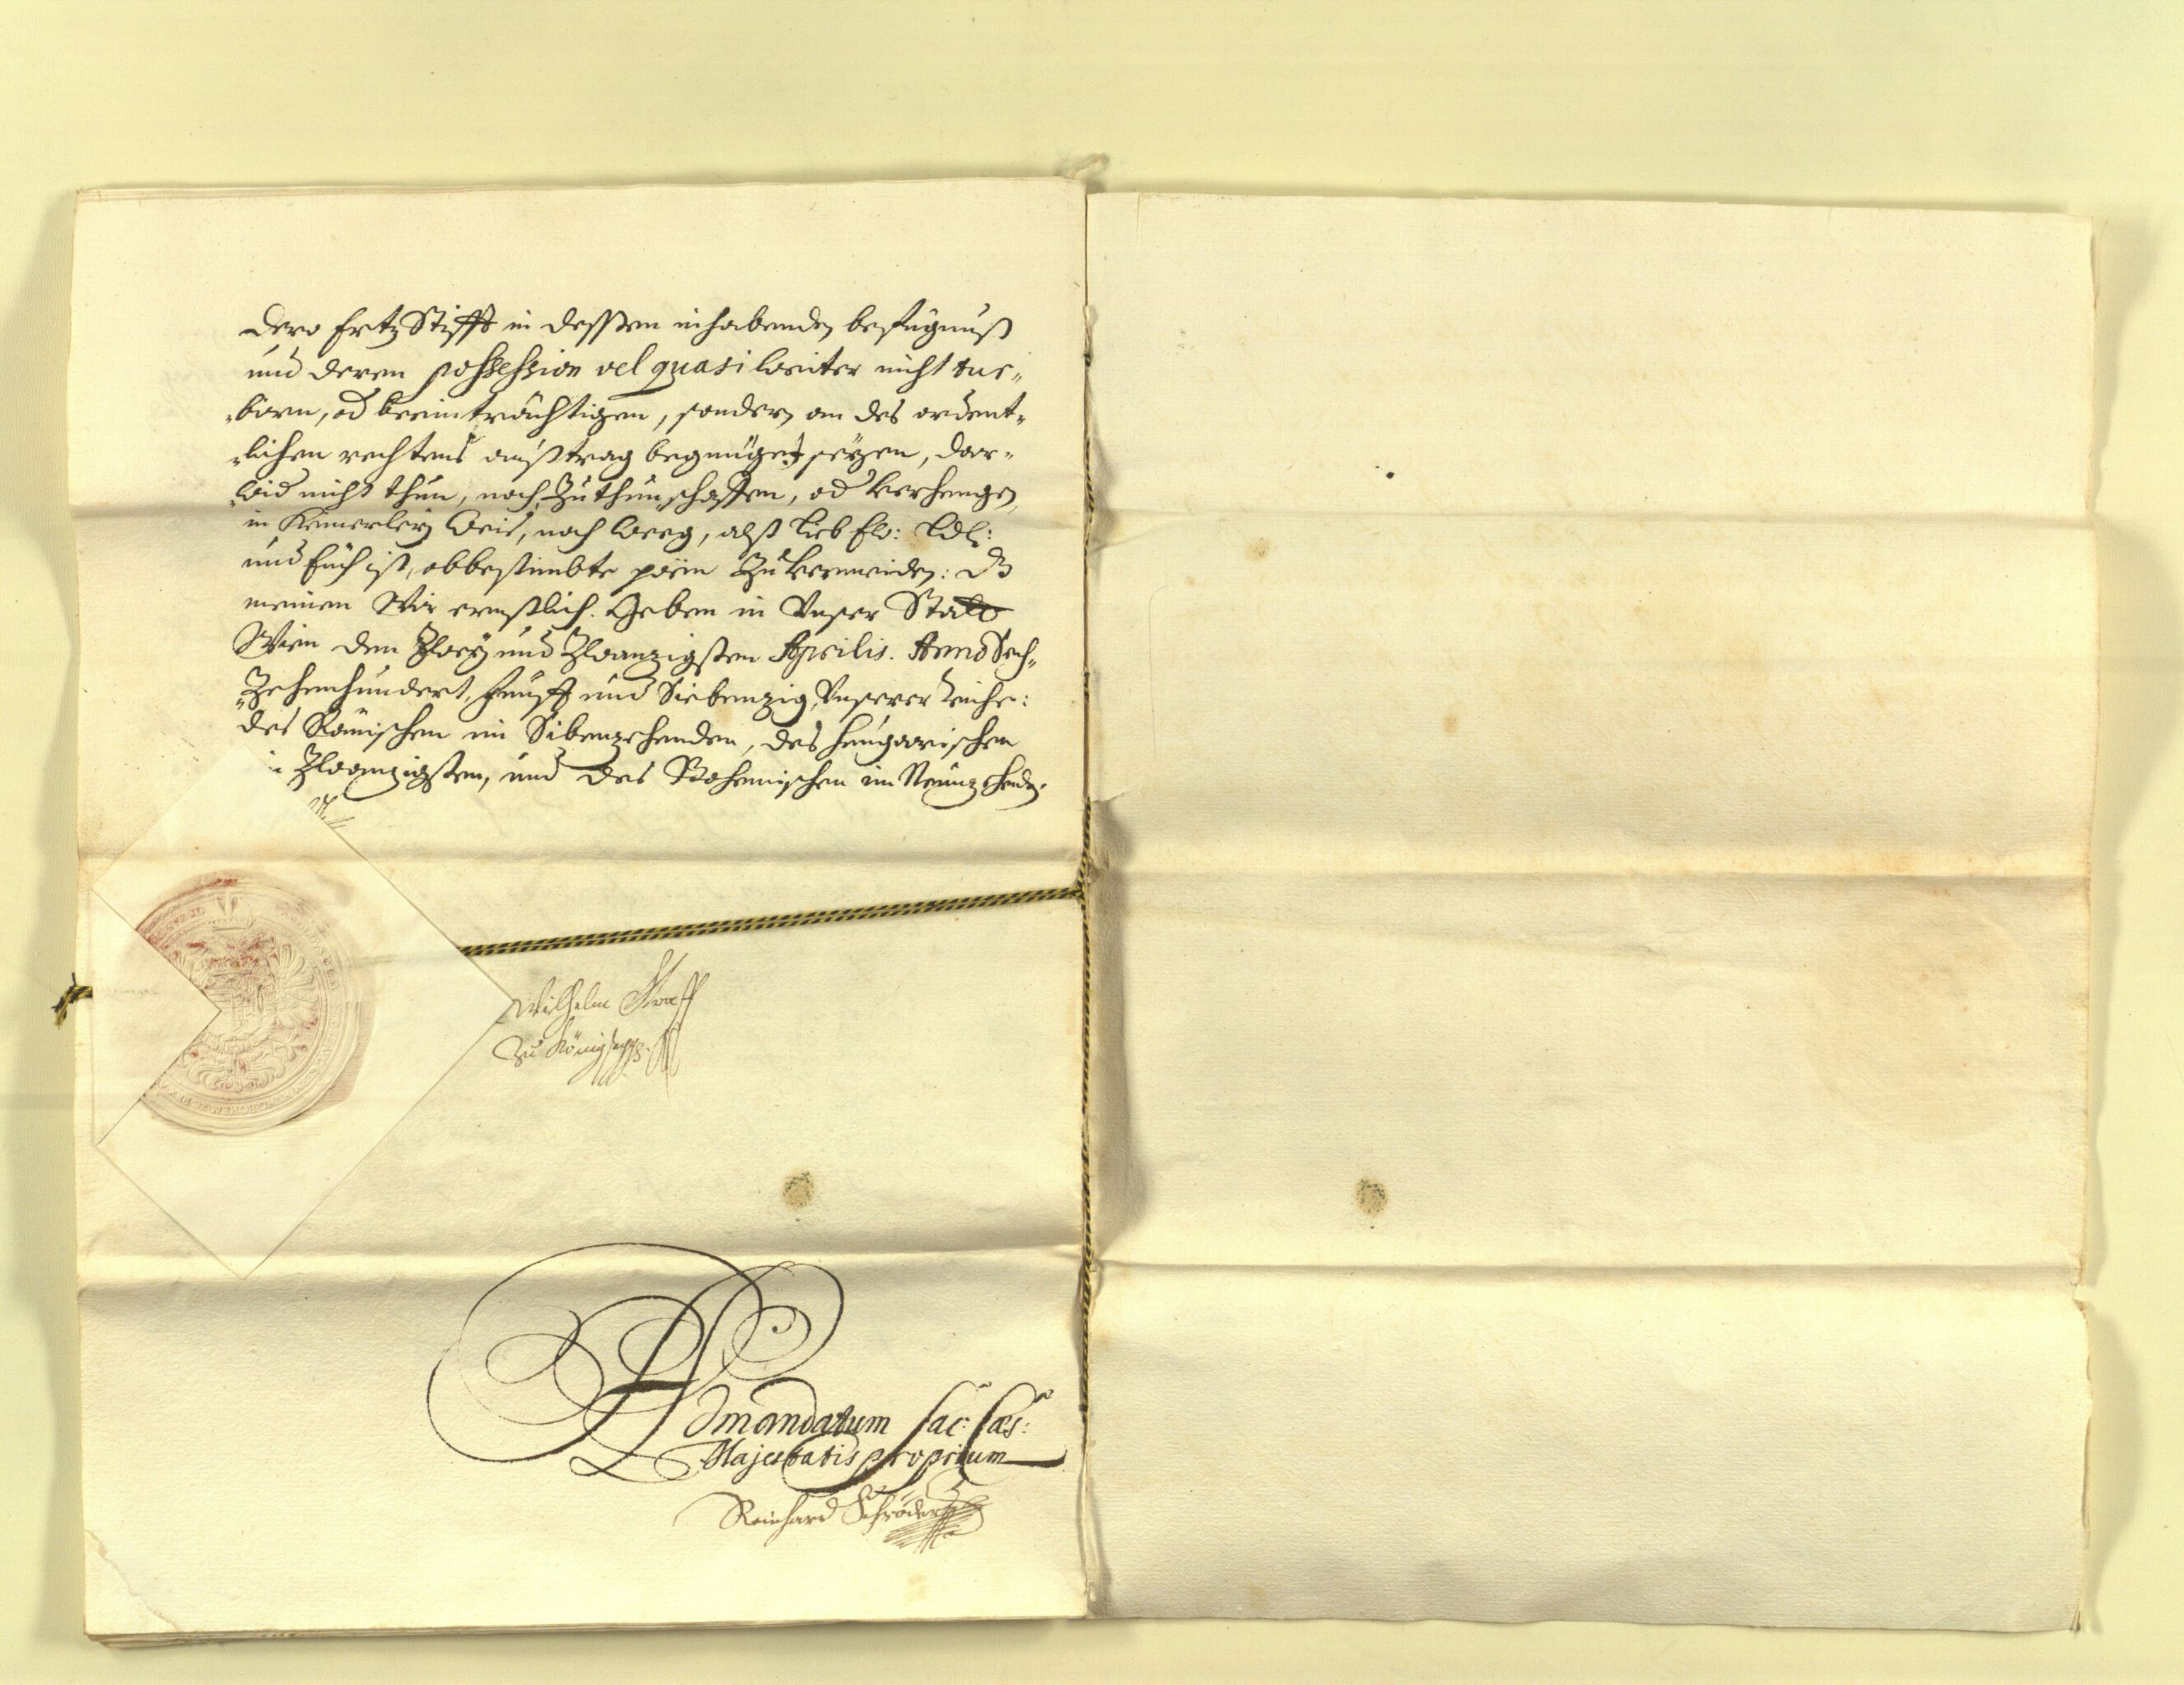 dero Ertz Stifft in dessen inhabenden befügnuß
und deren possession vel quasi weiter nicht tur„
„biren, od beeinträchtigen, sondern an des ordent„
„lichen rechtens außtrag begnüget seyen, dar„
„wid nicht thun, noch zuthun schaffen, od verhengen
in keinerley Weis, noch weeg, alß lieb Ew: Ldl:
und Euch ist, obbestimbte pöen zu vermeiden: dz
meinen Wir ernstlich. Geben in Unser Statt
Wien den Zwey und Zwanzigsten Aprilis. Anno Sech„
„Zehenhundert, Fünff und Siebenzig, Unserer Reiche:
des Römischen im Sibenzehenden, des Hungarischen
Zwanzigsten, und des Boheimischen im Neunzehenden.
Wilhelm Graff
zu Königsegg
Ad mandatum Sac: Caes:
Majestatis proprium
Reinhard Schröder